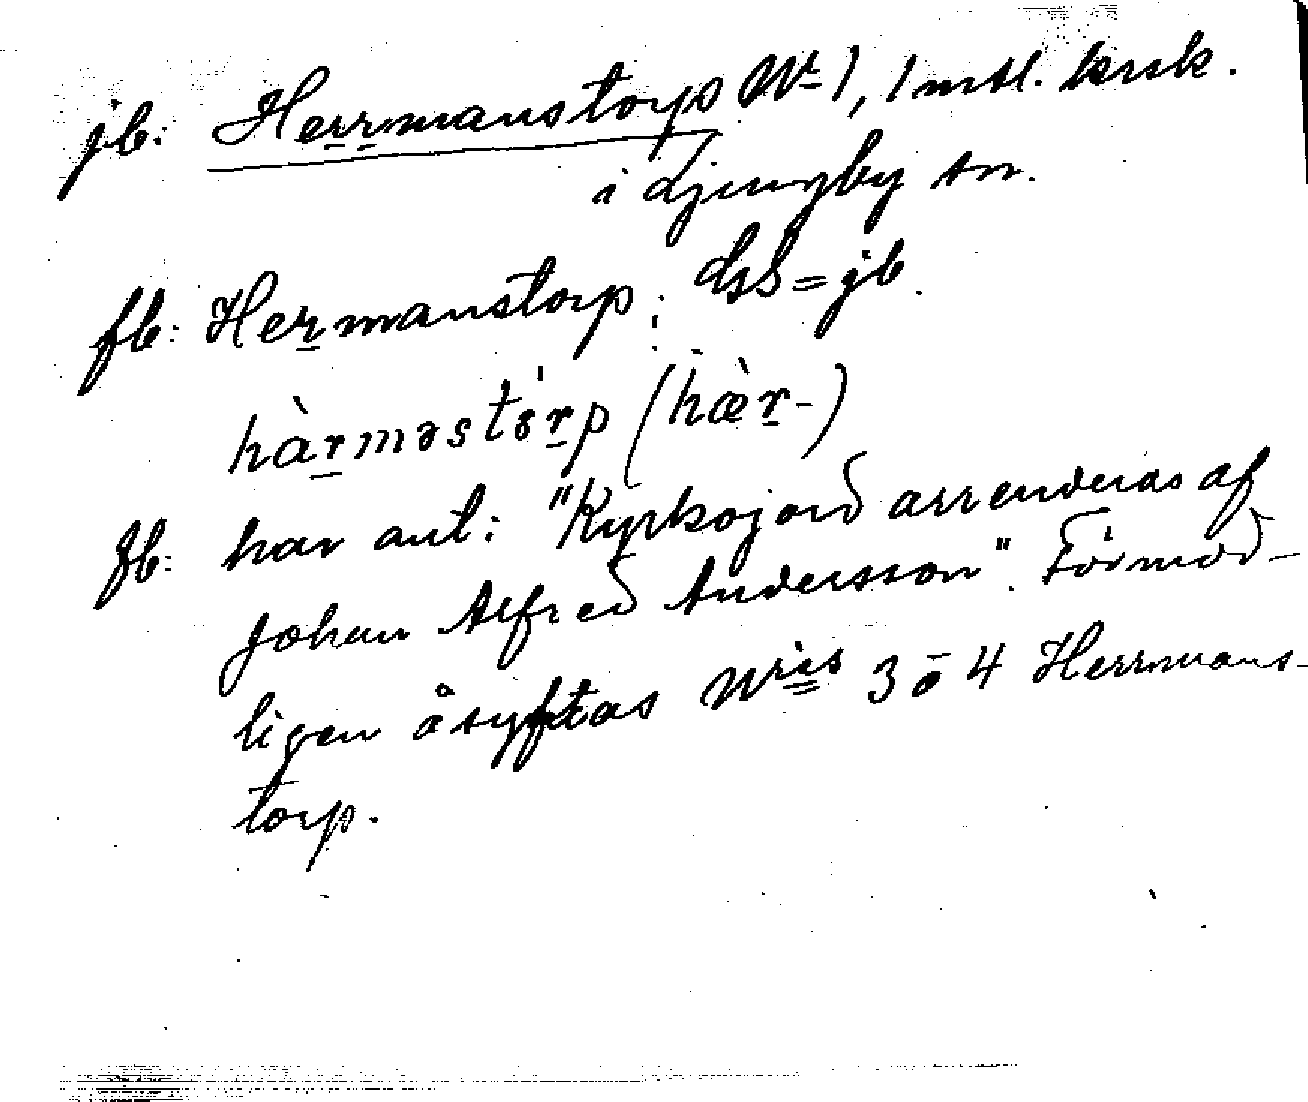 jb: Herrmanstorp Nr 1, 1 mtl. krsk.
i Ljungby sn.
fb: Hermanstorp; dsS = jb.
hàrməstɵ́rp (hæ̀r-)
fb: har ant: "Kyrkojord arrenderas af
Johan Alfred Andersson". Förmod-
ligen åsyftas Nris 3 o 4 Herrmans-
torp.